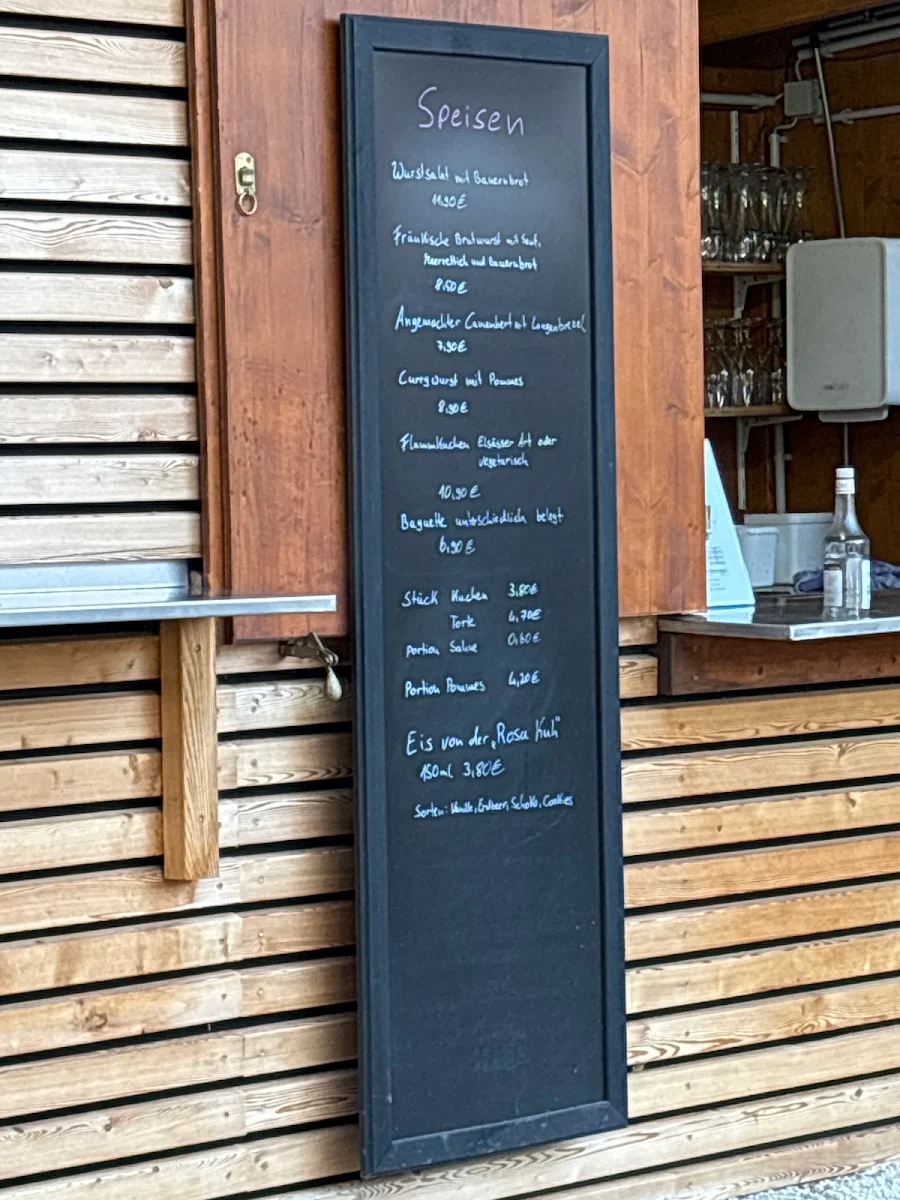 Speisen
Wurstsalat mit Bauernbrot
11,90€
Fränkische Bratwurst mit Senf,
Meerrettich und Bauernbrot
8,50€
Angemachter Camembert mit Laugenbrezel
7,90€
Currywurst mit Pommes
8,90€
Flammkuchen Elsässer Art oder
vegetarisch
10,90€
Baguette unterschiedlich belegt
6,90€
Stück Kuchen 3,80€
Torte 4,70€
Portion Sahne 0,60€
Portion Pommes 4,20€
Eis von der „Rosa Kuh“
150ml 3,80€
Sorten: Vanille, Erdbeer, Schoko, Cookies